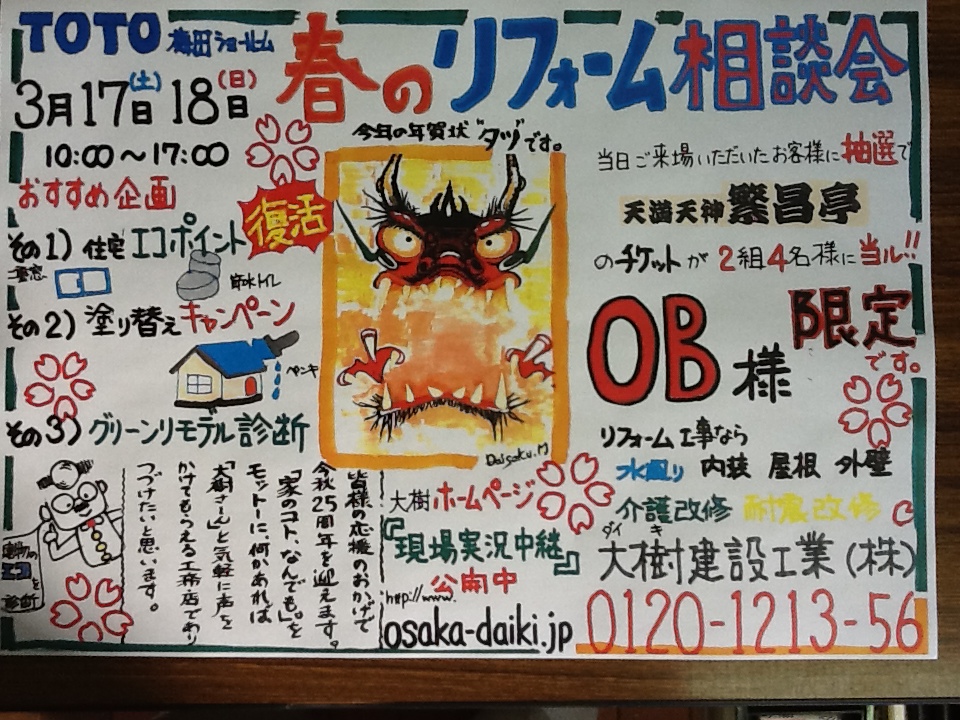 TOTO 梅田ショールーム
春のリフォーム相談会
3月17日(土) 18日(日)
10:00～17:00
おすすめ企画
その1) 住宅エコポイント 復活
節水トイレ
その2) 塗り替えキャンペーン
ペンキ
その3) グリーンリモデル診断
今年の年賀状"タツ"です。
Daisaku.M
当日ご来場いただいたお客様に抽選で
天満天神繁昌亭
のチケットが 2組4名様に当ル!!
OB様 限定
です。
リフォーム工事なら
水廻り 内装 屋根 外壁
介護改修 耐震改修
ダイキ
大樹建設工業(株)
0120-1213-56
建物の
エコを
診断
皆様の応援のおかげで
今秋25周年を迎えます。
「家のコト、なんでも。」を
モットーに、何かあれば
「大樹さーん」と気軽に声を
かけてもらえる工務店であり
つづけたいと思います。
大樹ホームページ
『現場実況中継』
公開中
http://www.
osaka-daiki.jp